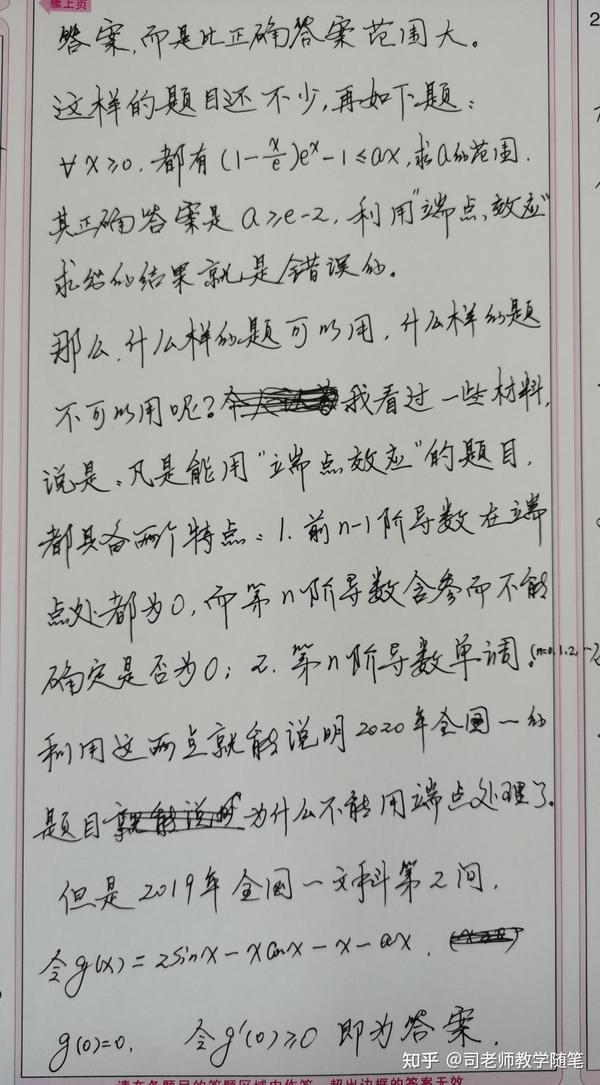 续上页
答案,而是比正确答案范围大。
这样的题目还不少,再如下题:
∀x≥0,都有(1-x/e)e^x-1≤ax,求a的范围.
其正确答案是a≥e-2,利用"端点效应"
求出的结果就是错误的。
那么,什么样的题可以用,什么样的题
不可以用呢?我看过一些材料,
说是:凡是能用"端点效应"的题目,
都具备两个特点:1.前n-1阶导数在端
点处都为0,而第n阶导数含参而不能
确定是否为0;2.第n阶导数单调.(n=0,1,2,…)
利用这两点就能说明2020年全国一的
题目为什么不能用端点处理了。
但是2019年全国一文科第2问,
令g(x)=2sinx-xcosx-x-ax.
g(0)=0, 令g'(0)≥0 即为答案.
知乎 @司老师教学随笔
请在各题目的答题区域内作答,超出边框的答案无效